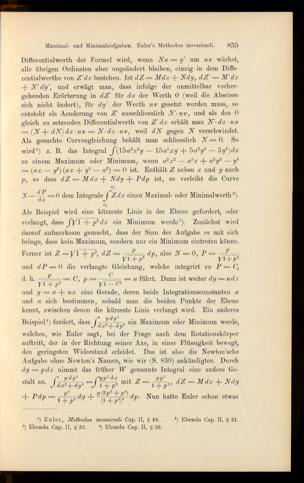 Maximal- und Minimalaufgaben. Euler's Methodus inveniendi. 835
Differentialwerth der Formel wird, wenn Nn = y′ um nν wächst,
alle übrigen Ordinaten aber ungeändert bleiben, einzig in dem Diffe-
rentialwerthe von Z′dx bestehen. Ist dZ = Mdx + Ndy, dZ′ = M′dx
+ N′dy′, und erwägt man, dass infolge der unmittelbar vorher-
gehenden Erörterung in dZ′ für dx der Werth 0 (weil die Abscisse
sich nicht ändert), für dy′ der Werth nν gesetzt werden muss, so
entsteht als Aenderung von Z′ ausschliesslich N′·nν, und als den 0
gleich zu setzenden Differentialwerth von Z′dx erhält man N′·dx·nν
= (N + dN)dx·nν = N·dx·nν, weil dN gegen N verschwindet.
Als gesuchte Curvengleichung behält man schliesslich N = 0. So
wird¹) z. B. das Integral ∫(15a²x²y − 15a³xy + 5a²y³ − 3y⁵)dx
zu einem Maximum oder Minimum, wenn a²x² − a³x + a²y² − y⁴
= (ax − y²)(ax + y² − a²) = 0 ist. Enthält Z neben x und y auch
p, so dass dZ = Mdx + Ndy + Pdp ist, so verleiht die Curve
N − dP/dx = 0 dem Integrale ∫Zdx einen Maximal- oder Minimalwerth²).
Als Beispiel wird eine kürzeste Linie in der Ebene gefordert, oder
verlangt, dass ∫√1 + p² dx ein Minimum werde³). Zunächst wird
darauf aufmerksam gemacht, dass der Sinn der Aufgabe es mit sich
bringe, dass kein Maximum, sondern nur ein Minimum eintreten könne.
Ferner ist Z = √1 + p², dZ = p/√1+p² dp, also N = 0, P = p/√1+p²
und dP = 0 die verlangte Gleichung, welche integrirt zu P = C,
d. h. p/√1+p² = C, p = C/√1−C² = n führt. Dann ist weiter dy = ndx
und y = a + nx eine Gerade, deren beide Integrationsconstanten a
und n sich bestimmen, sobald man die beiden Punkte der Ebene
kennt, zwischen denen die kürzeste Linie verlangt wird. Ein anderes
Beispiel⁴) fordert, dass ∫y dy³/dx²+dy² ein Maximum oder Minimum werde,
welches, wie Euler sagt, bei der Frage nach dem Rotationskörper
auftritt, der in der Richtung seiner Axe, in einer Flüssigkeit bewegt,
den geringsten Widerstand erleidet. Das ist also die Newton'sche
Aufgabe ohne Newton's Namen, wie wir (S. 830) ankündigten. Durch
dy = pdx nimmt das früher W genannte Integral eine andere Ge-
stalt an. ∫y dy³/dx²+dy² = ∫yp³dx/1+p² mit Z = yp³/1+p², dZ = Mdx + Ndy
+ Pdp = p³/1+p² dy + y(3p²+p⁴)/(1+p²)² dp. Nun hatte Euler schon etwas
¹) Euler, Methodus inveniendi Cap. II, § 18. ²) Ebenda Cap. II, § 21.
³) Ebenda Cap. II, § 33. ⁴) Ebenda Cap. II, § 36.